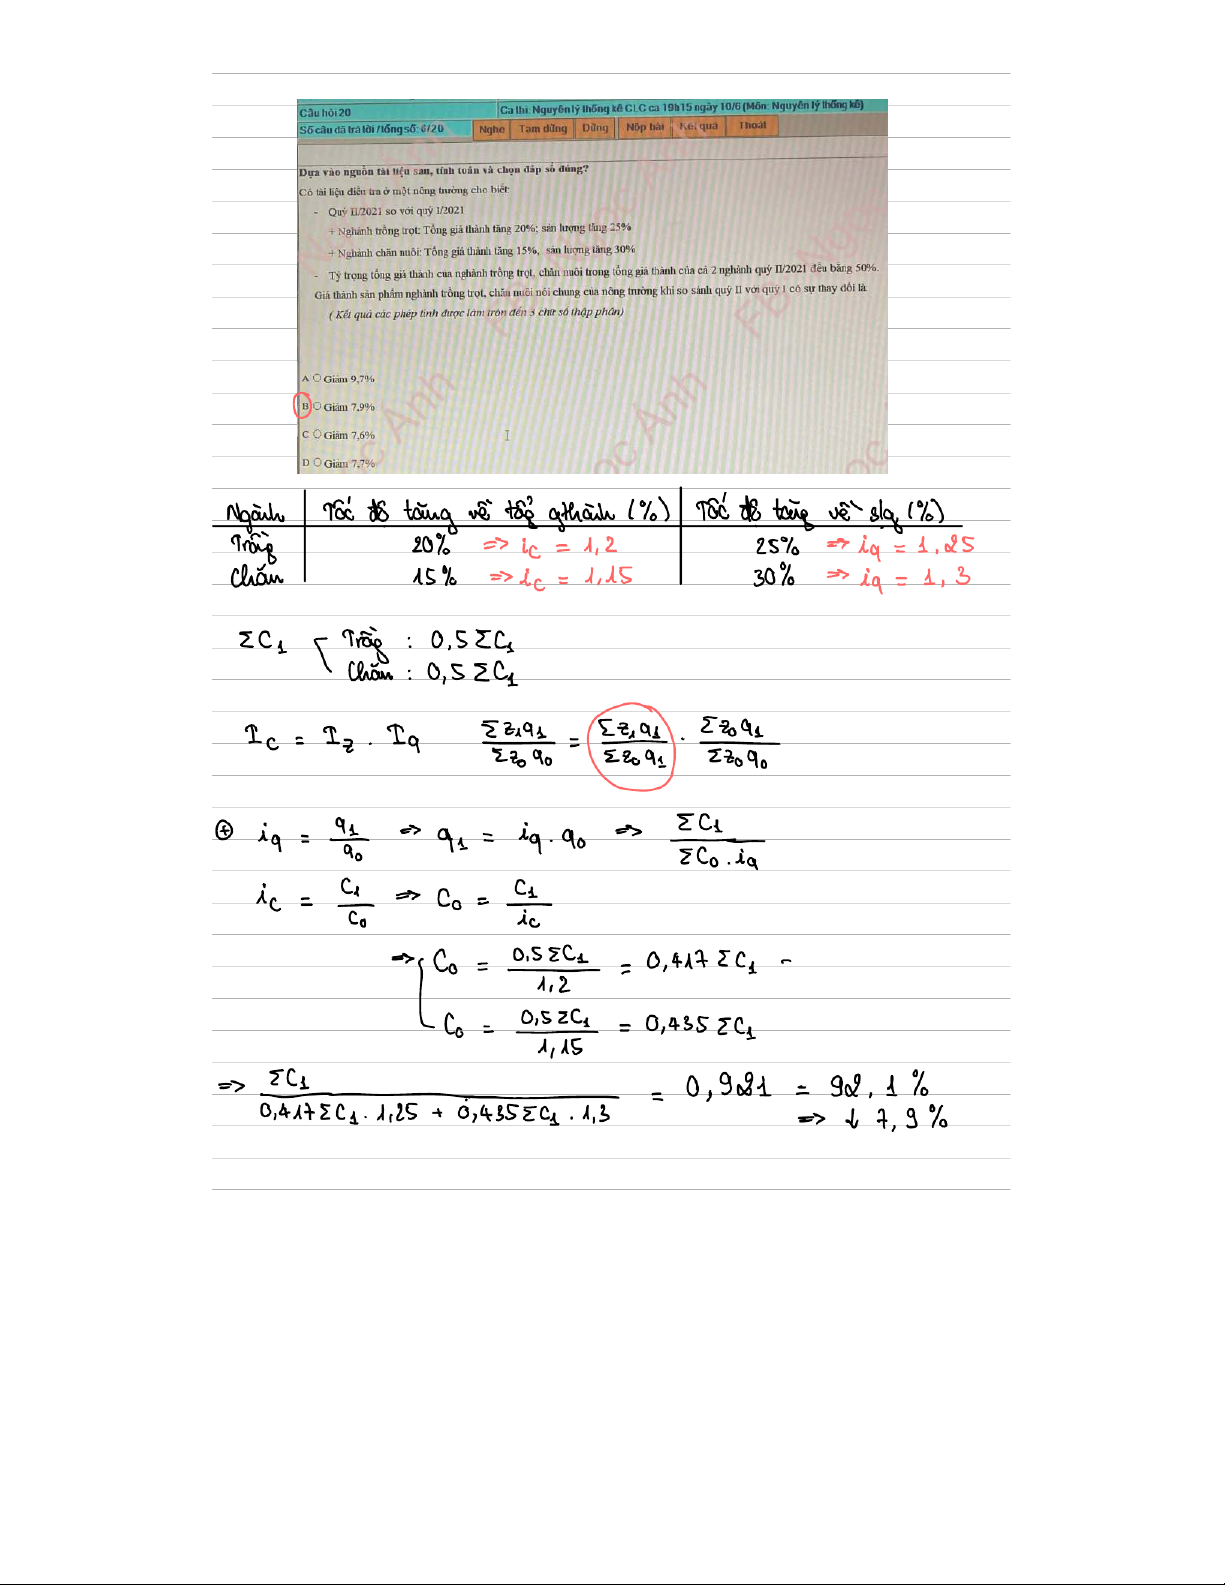 Câu hỏi 20
Ca thi: Nguyên lý thống kê CLC ca 19h15 ngày 10/6 (Môn: Nguyên lý thống kê)
Số câu đã trả lời /tổng số: 6/20
Nghe Tạm dừng Dừng Nộp bài Kết quả Thoát
Dựa vào nguồn tài liệu sau, tính toán và chọn đáp số đúng?
Có tài liệu điều tra ở một nông trường cho biết:
- Quý II/2021 so với quý I/2021
+ Nghành trồng trọt: Tổng giá thành tăng 20%; sản lượng tăng 25%
+ Nghành chăn nuôi: Tổng giá thành tăng 15%, sản lượng tăng 30%
- Tỷ trọng tổng giá thành của nghành trồng trọt, chăn nuôi trong tổng giá thành của cả 2 nghành quý II/2021 đều bằng 50%.
Giá thành sản phẩm nghành trồng trọt, chăn nuôi nói chung của nông trường khi so sánh quý II với quý I có sự thay đổi là
( Kết quả các phép tính được làm tròn đến 3 chữ số thập phân)
A Giảm 9,7%
B Giảm 7,9%
C Giảm 7,6%
D Giảm 7,7%
Ngành Tốc độ tăng về tổg gthành (%) Tốc độ tăng về slg (%)
Trồg 20% => ic = 1,2 25% => iq = 1,25
Chăn 15% => ic = 1,15 30% => iq = 1,3
ΣC1 Trồg : 0,5 ΣC1
Chăn : 0,5 ΣC1
Ic = Iz . Iq Σz1q1/Σz0q0 = Σz1q1/Σz0q1 . Σz0q1/Σz0q0
⊕ iq = q1/q0 => q1 = iq . q0 => ΣC1/ΣC0 . iq
ic = C1/C0 => C0 = C1/ic
=> C0 = 0,5ΣC1/1,2 = 0,417 ΣC1 -
C0 = 0,5ΣC1/1,15 = 0,435 ΣC1
=> ΣC1/0,417ΣC1 . 1,25 + 0,435ΣC1 . 1,3 = 0,921 = 92,1%
=> ↓ 7,9%